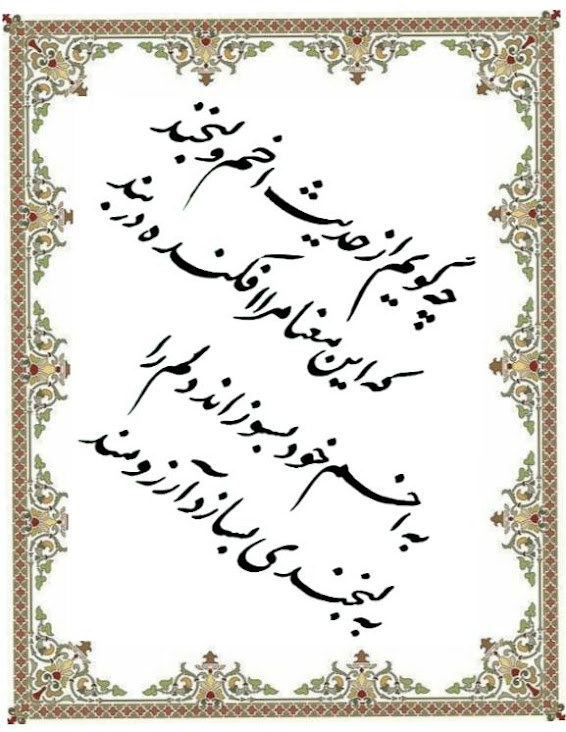 چه گویم از حدیث اخم و لبخند
که این معنا مرا افکنده در بند
به اخم خود بسوزاند دلم را
به لبخندی بسازد آرزومند